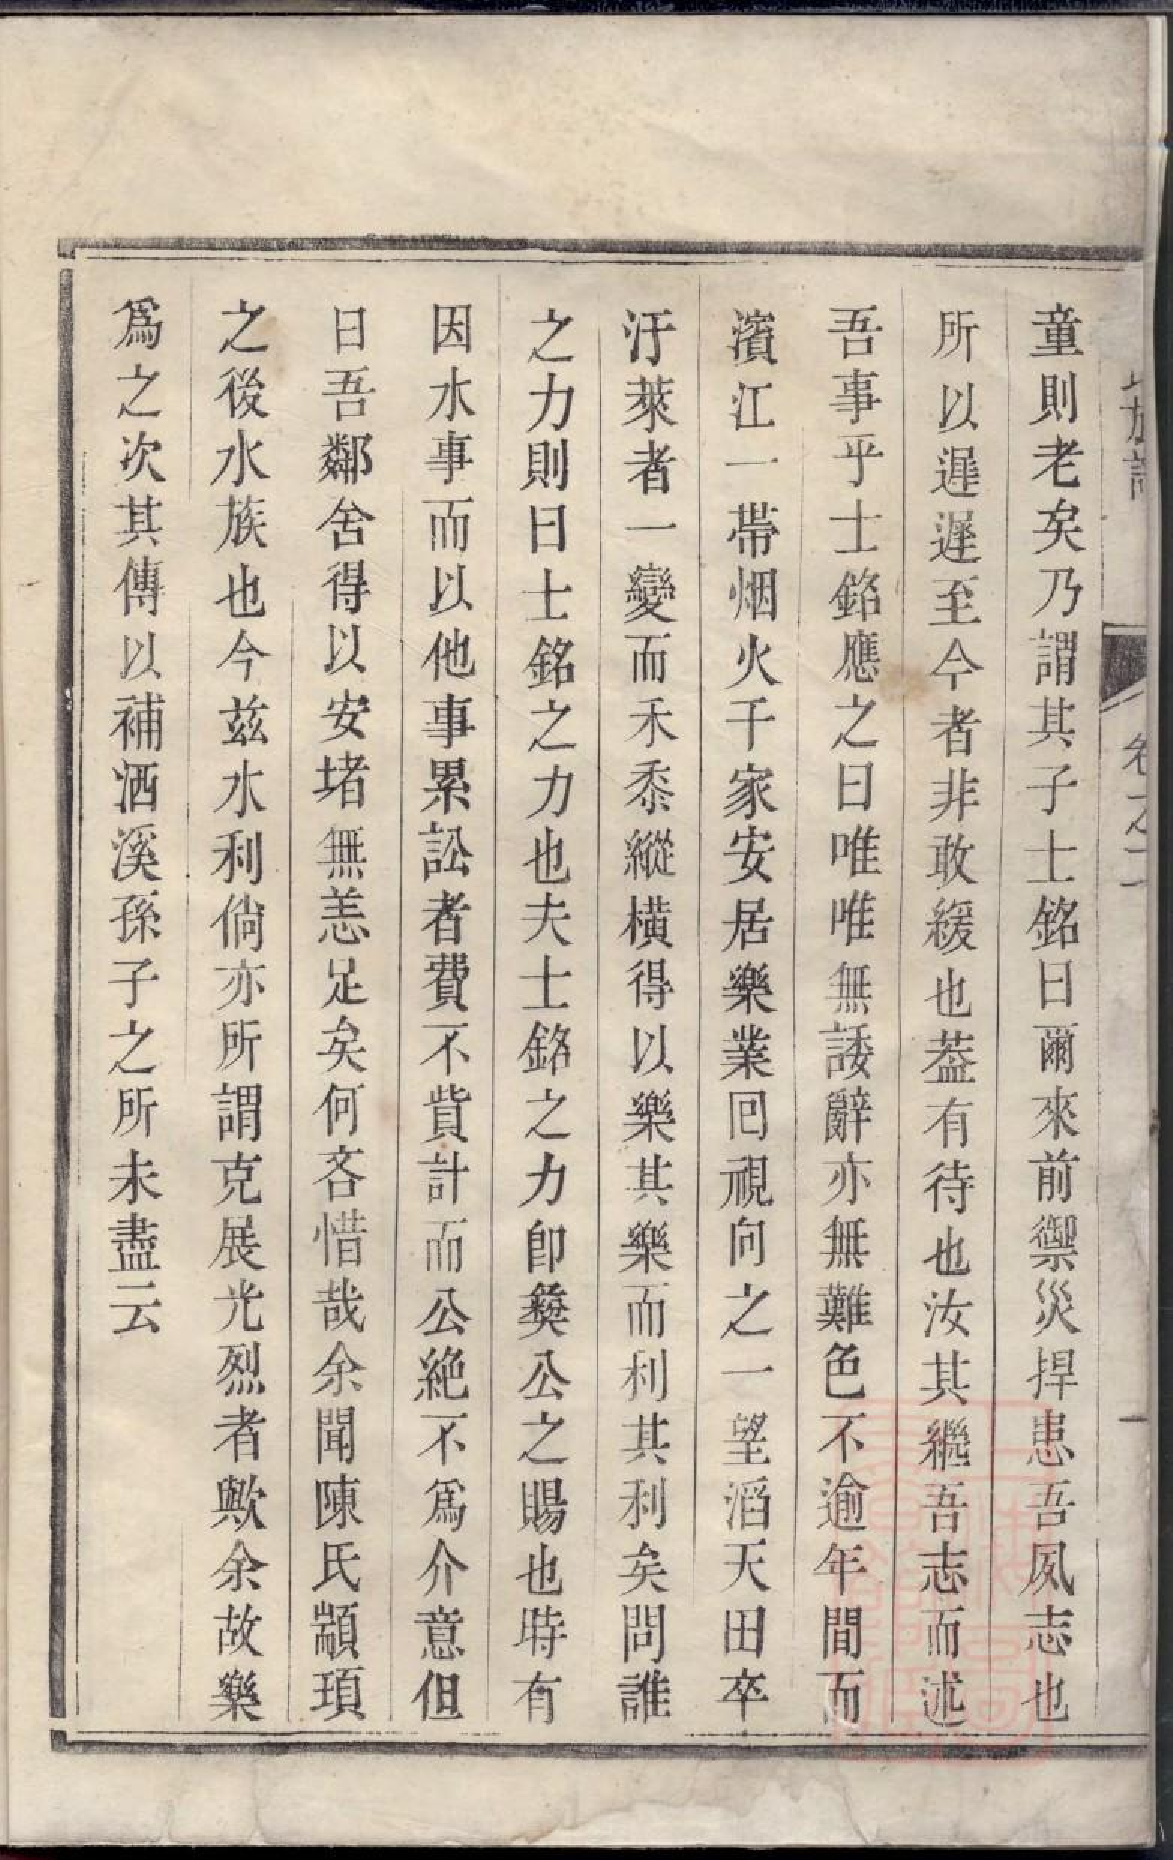 童則老矣乃謂其子士銘曰爾來前禦災捍患吾夙志也
所以遲遲至今者非敢緩也葢有待也汝其繼吾志而述
吾事乎士銘應之曰唯唯無諉辭亦無難色不逾年間而
濱江一帶烟火千家安居樂業回視向之一望滔天田卒
汙萊者一變而禾黍縱橫得以樂其樂而利其利矣問誰
之力則曰士銘之力也夫士銘之力卽獎公之賜也時有
因水事而以他事累訟者費不貲計而公絶不爲介意但
曰吾鄰舍得以安堵無恙足矣何吝惜哉余聞陳氏顓頊
之後水族也今兹水利倘亦所謂克展光烈者歟余故樂
爲之次其傳以補洒溪孫子之所未盡云
卷之二
一